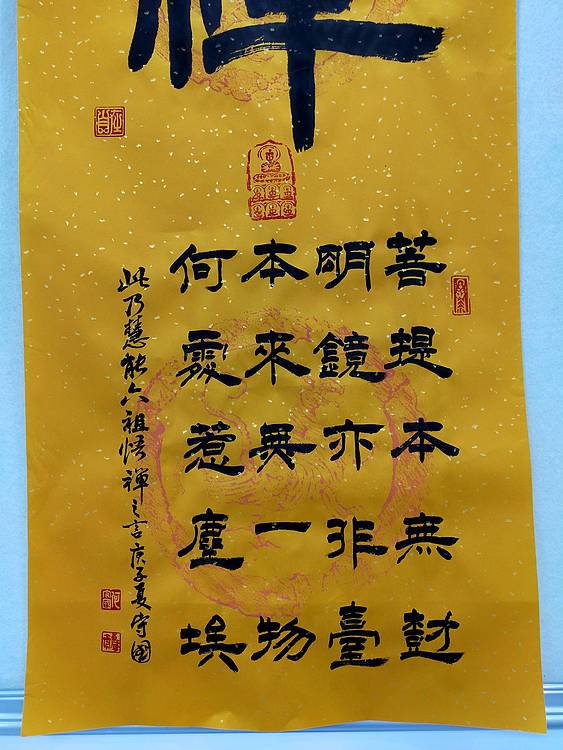 菩提本無樹
明鏡亦非臺
本來無一物
何處惹塵埃
此乃慧能六祖悟禪之言庚子夏守國